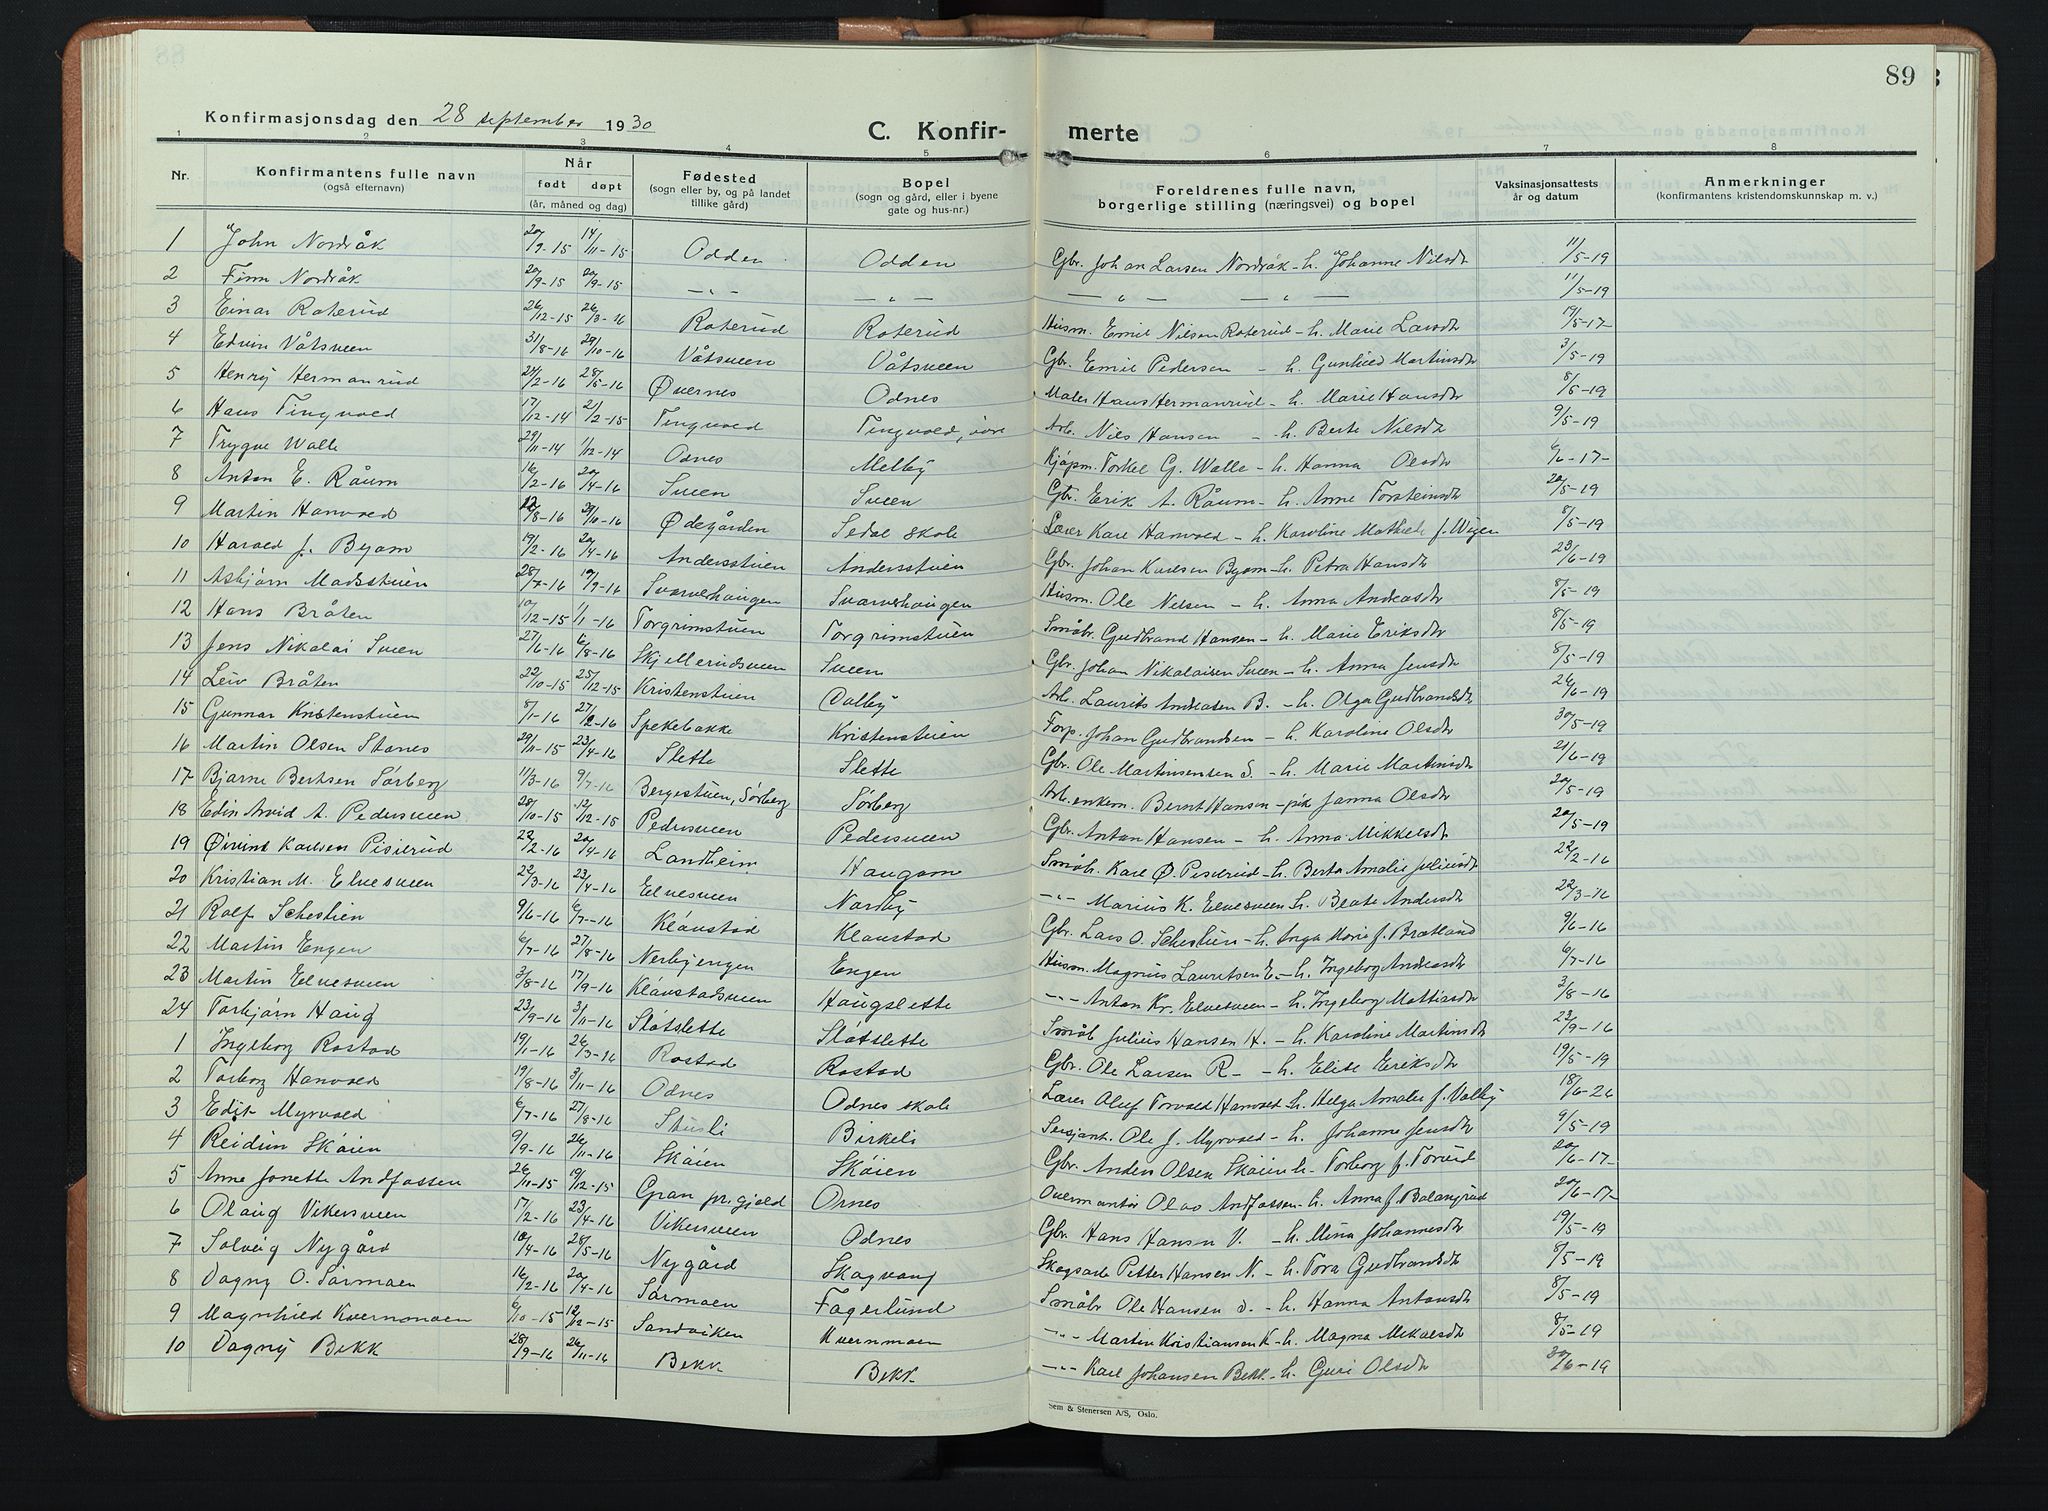 89
Konfirmasjonsdag den 28 september 1930
C. Konfir- merte
1 2 3 4 5 6 7 8
Nr. Konfirmantens fulle navn (også efternavn) Når født døpt (år, måned og dag) Fødested (sogn eller by, og på landet tillike gård) Bopel (sogn og gård, eller i byene gate og hus-nr.) Foreldrenes fulle navn, borgerlige stilling (næringsvei) og bopel Vaksinasjonsattests år og datum Anmerkninger (konfirmantens kristendomskunnskap m. v.)
1 John Nordråk 20/9-15 14/11-15 Odden Odden Gbr. Johan Larsen Nordråk - h. Johanne Nilsdtr 11/5-19
2 Finn Nordråk 20/9-15 20/9-15 -"- -"- -"- -"- 11/5-19
3 Einar Roterud 26/12-15 26/3-16 Roterud Roterud Husm. Emil Nilsen Roterud - h. Marie Larsdtr 19/5-17
4 Edvin Våtsveen 31/8-16 29/10-16 Våtsveen Våtsveen Gbr. Emil Pedersen - h. Gunhild Martinsdtr 3/5-19
5 Henry Hermanrud 24/2-16 28/5-16 Øvernes Odnes Maler Hans Hermanrud - h. Marie Hansdtr 8/5-19
6 Hans Tingvold 17/12-14 21/2-15 Tingvold Tingvold, øvre Arb. Nils Hansen - h. Berte Nilsdtr 9/5-19
7 Trygve Walle 29/11-14 1/12-14 Odnes Melby Kjøpm. Torkel G. Walle - h. Hanna Olsdtr 6/6-17
8 Anton E. Råum 16/2-16 20/4-16 Sveen Sveen Gbr. Erik A. Råum - h. Anne Torsteinsdtr 20/5-19
9 Martin Hanvold 12/8-16 29/10-16 Ødegården Sedal skole Lærer Karl Hanvold - h. Karoline Mathilde f. Wigen 8/5-19
10 Harald J. Byom 19/2-16 20/4-16 Andersstuen Andersstuen Gbr. Johan Karlsen Byom - h. Petra Hansdtr 23/6-19
11 Asbjørn Madsstuen 28/7-16 10/9-16 Svarverhaugen Svarverhaugen Husm. Ole Nilsen - h. Anna Andreasdtr 8/5-19
12 Hans Bråten 10/12-15 1/1-16 Torgrimstuen Torgrimstuen Småbr. Gudbrand Hansen - h. Marie Eriksdtr 8/5-19
13 Jens Nikolai Sveen 27/6-16 6/8-16 Skjellerudsveen Sveen Gbr. Johan Nikolaisen Sveen - h. Anna Jensdtr 8/5-19
14 Leiv Bråten 22/10-15 25/12-15 Kristenstuen Dalby Arb. Laurits Andreasen B. - h. Olga Gudbrandsdtr 26/6-19
15 Gunnar Kristenstuen 8/1-16 27/2-16 Spekebakke Kristenstuen Forp. Johan Gudbrandsen - h. Karoline Olsdtr 30/5-19
16 Martin Olsen Stenes 29/11-15 23/4-16 Slette Slette Gbr. Ole Martinsensen S. - h. Marie Martinsdtr 21/6-19
17 Bjarne Berntsen Sørberg 11/3-16 9/7-16 Bergestuen, Sørberg Sørberg Arb. enkem. Bernt Hansen - pik Janna Olsdtr 20/5-19
18 Edin Arvid A. Pedersveen 28/10-15 12/12-15 Pedersveen Pedersveen Gbr. Anton Hansen - h. Anna Mikkelsdtr 20/5-19
19 Øivind Karlsen Piserud 22/2-16 20/4-16 Landheim Haugom Småb. Karl Ø. Piserud - h. Berta Amalie Juliusdtr 22/2-16
20 Kristian M. Elvesveen 22/3-16 23/4-16 Elvesveen Nordby -"- Marius K. Elvesveen h. Beate Andersdtr 22/3-16
21 Rolf Schestien 9/6-16 6/7-16 Klåvstad Klavstad Gbr. Lars O. Schestien - h. Inga Marie f. Brætlund 9/6-16
22 Martin Engen 6/7-16 27/8-16 Nerbyengen Engen Husm. Magnus Lauritsen E. - h. Ingeborg Andreasdtr 6/7-16
23 Martin Elvesveen 3/8-16 17/9-16 Klåvstadsveen Haugslette -"- Anton Kr. Elvesveen - h. Ingeborg Mattisdtr 3/8-16
24 Torbjørn Haug 23/9-16 3/11-16 Slåtslette Slåtslette Småb Julius Hansen H. - h. Karoline Martinsdtr 23/9-16
1 Ingeborg Rostad 19/1-16 26/3-16 Rostad Rostad Gbr. Ole Larsen R - h. Elise Eriksdtr 19/5-19
2 Torborg Hanvold 19/8-16 3/11-16 Odnes Odnes skole Lærer Oluf Torvald Hanvold h. Helga Amalie f. Valby 18/6-26
3 Edit Myrvold 6/7-16 27/8-16 Stusli Birkeli Sersjant. Ole J. Myrvold - h. Johanne Jensdtr 9/5-19
4 Reidun Skøien 9/9-16 26/11-16 Skøien Skøien Gbr. Anders Olsen Skøien h. Torborg f. Torud 20/6-17
5 Anne Jonette Andfossen 26/11-15 19/12-15 Gran pr.gjeld Odnes Overmontør Olav Andfossen - h. Anna f. Balangrud 20/6-17
6 Olaug Vikersveen 17/2-16 23/4-16 Vikersveen Odnes Gbr. Hans Hansen V. - h. Mina Johannesdtr 19/5-19
7 Solveig Nygård 10/4-16 28/5-16 Nygård Skogvang Skogsarb Petter Hansen N. - h. Tora Gudbrandsdtr 8/5-19
8 Dagny O. Sørmoen 16/2-16 20/4-16 Sørmoen Fagerlund Småbr Ole Hansen S. - h. Hanna Antonsdtr 8/5-19
9 Magnhild Kvernmoen 6/10-15 12/12-15 Sandviken Kvernmoen -"- Martin Kristiansen K - h. Magna Mikalsdtr 8/5-19
10 Dagny Bekk 28/9-16 26/11-16 Bekk Bekk -"- Karl Johansen Bekk - h. Guri Olsdtr 30/6-19
Sem & Stenersen A/S, Oslo.